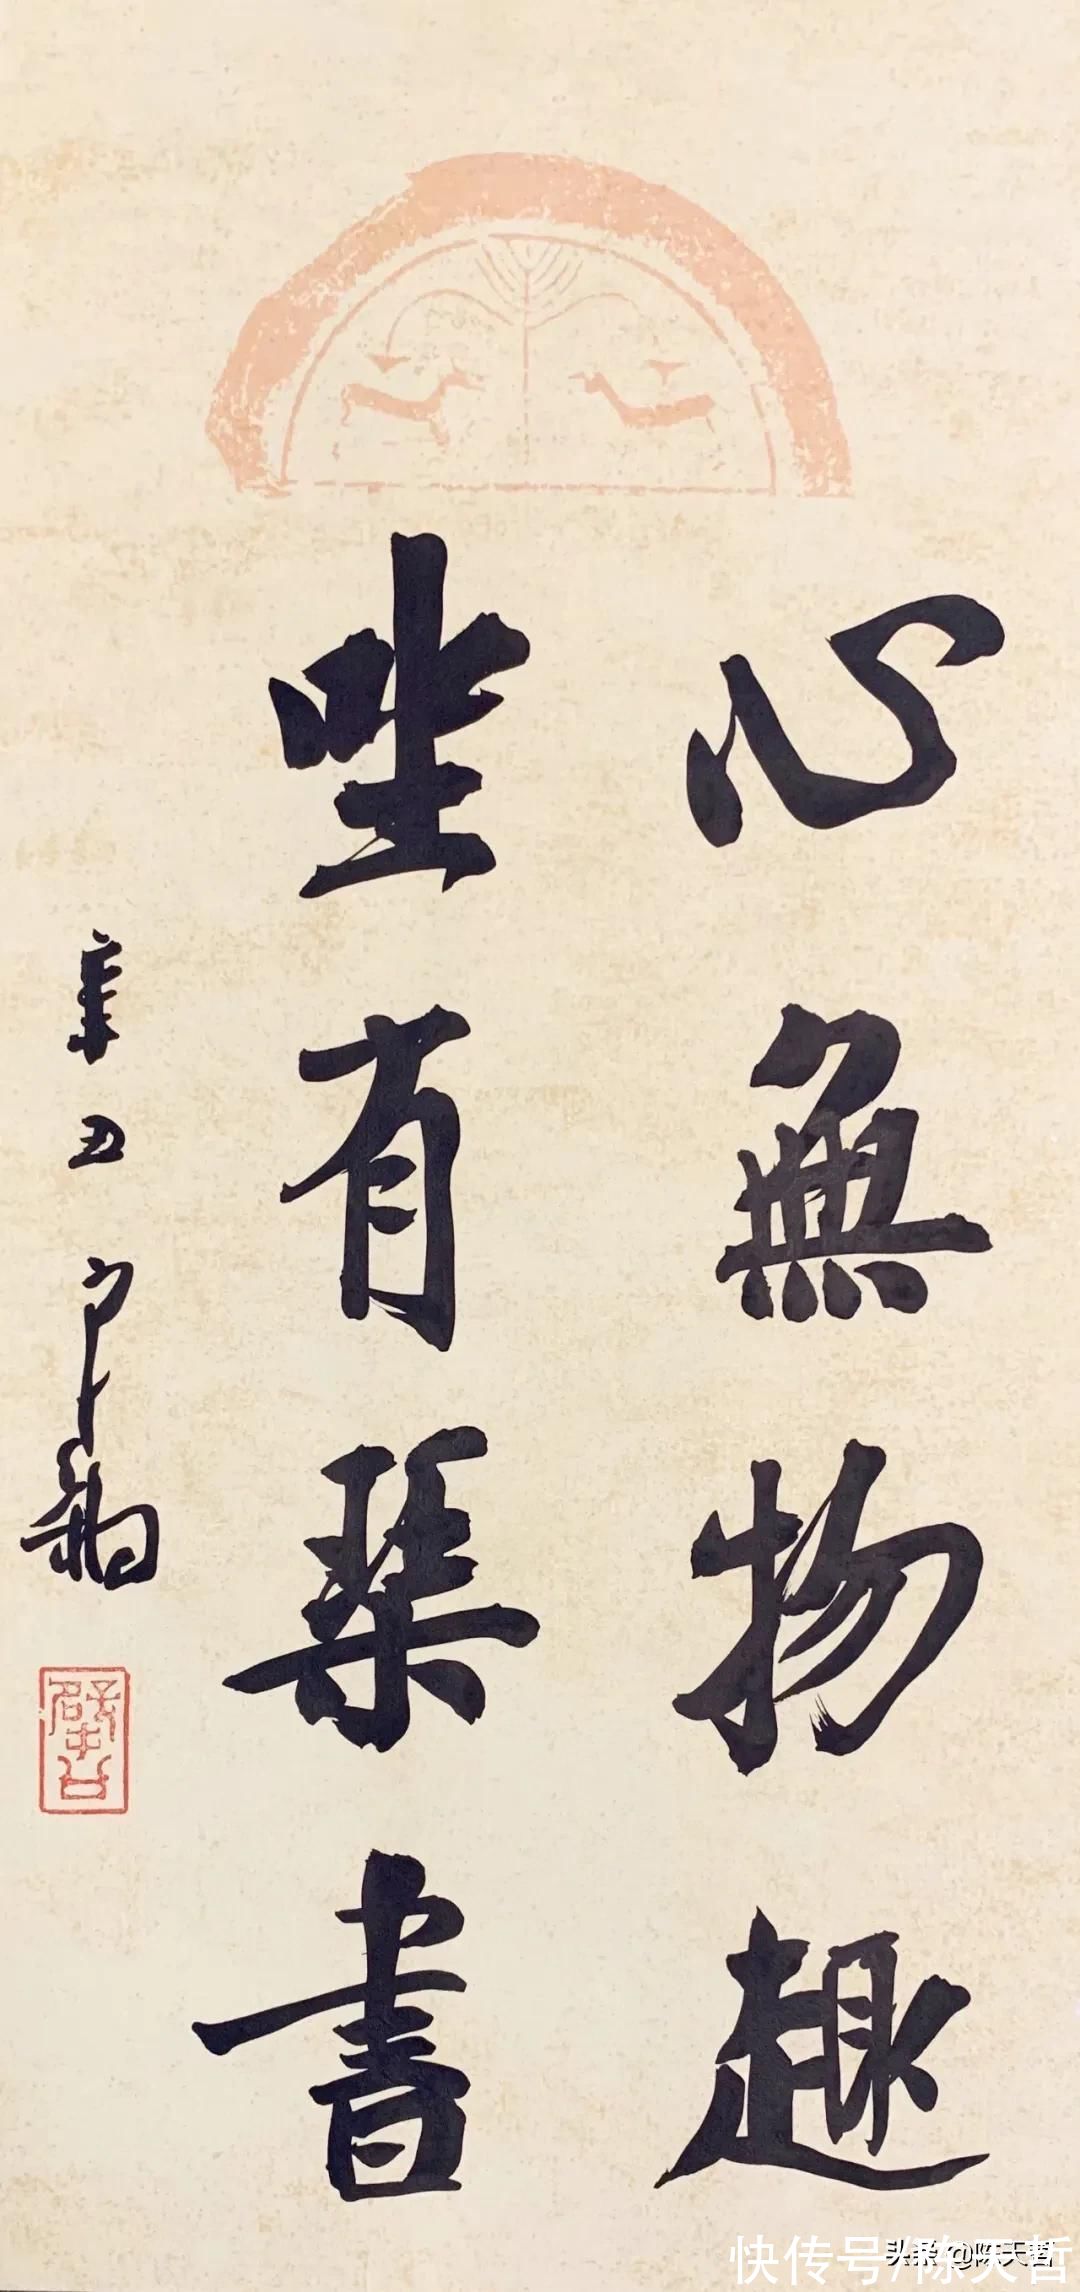 心無物趣
坐有琴書
辛丑
快传号/陈天哲
头条 @陈天哲